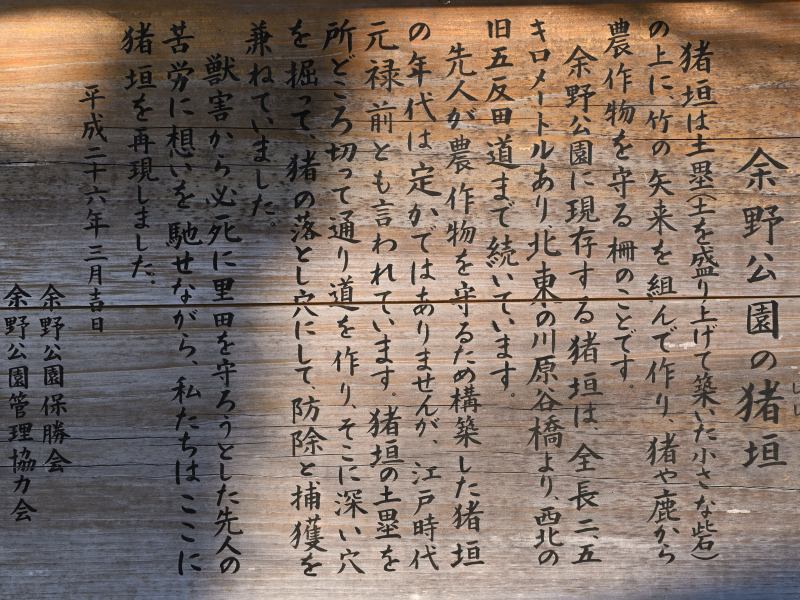 余野公園の猪垣
猪垣は土塁(土を盛り上げて築いた小さな砦)
の上に竹の矢来を組んで作り、猪や鹿から
農作物を守る柵のことです。
余野公園に現存する猪垣は全長二、五
キロメートルあり北東の川原谷橋より、西北の
旧五反田道まで続いています。
先人が農作物を守るため構築した猪垣
の年代は定かではありませんが、江戸時代
元禄前とも言われています。猪垣の土塁を
所どころ切って通り道を作り、そこに深い穴
を掘って、猪の落とし穴にして、防除と捕獲を
兼ねていました。
獣害から必死に里田を守ろうとした先人の
苦労に想いを馳せながら、私たちはここに
猪垣を再現しました。
平成二十六年三月吉日
余野公園保勝会
余野公園管理協力会